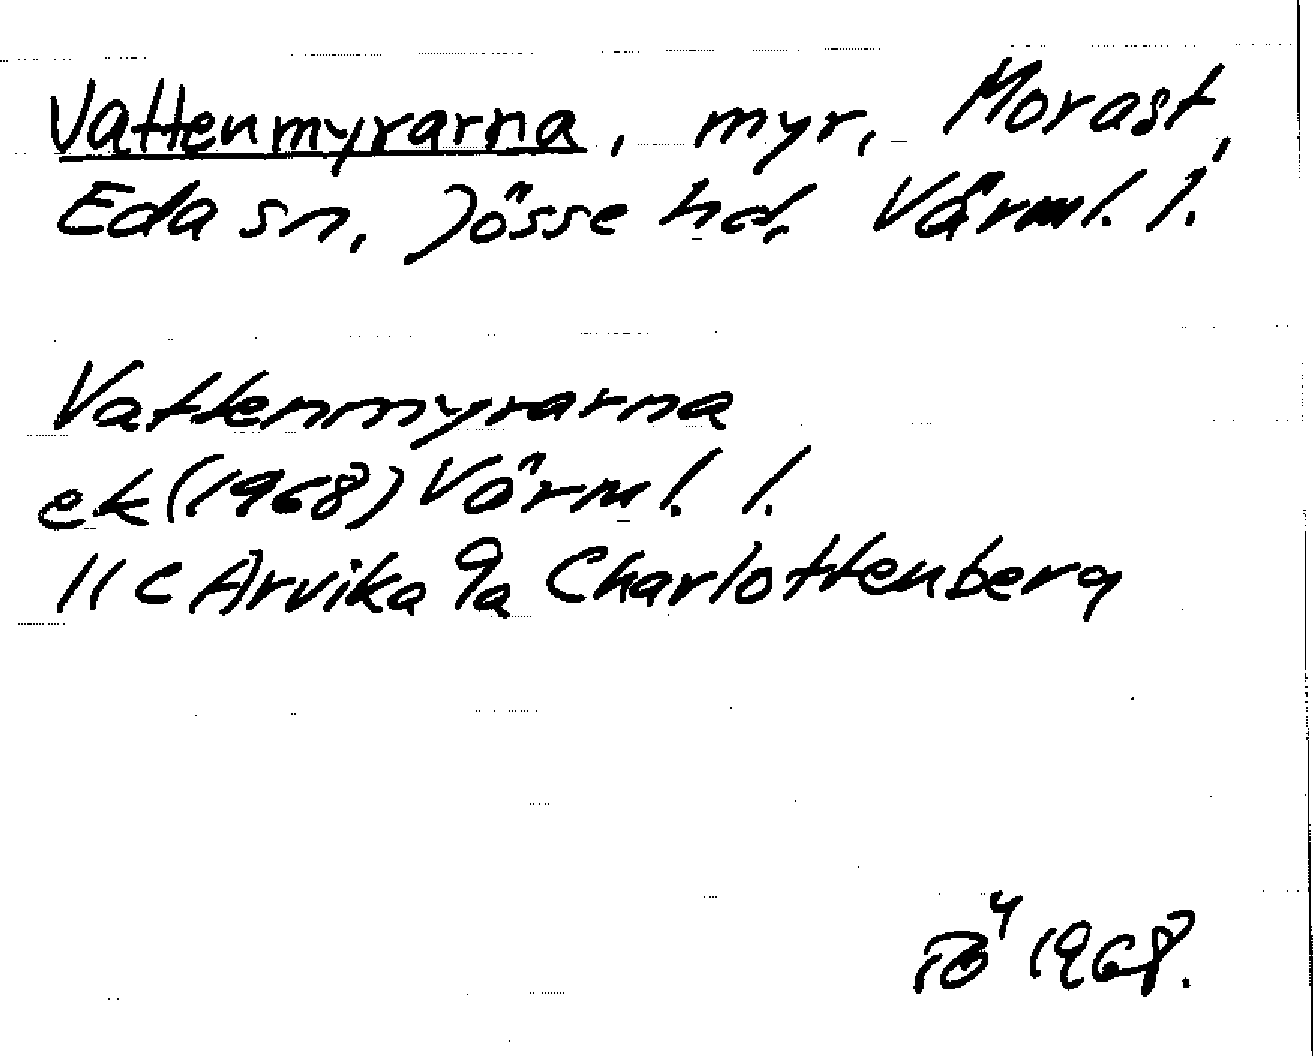 Vattenmyrarna, myr, Morast,
Eda sn, Jösse hd, Värml. l.
Vattenmyrarna
ek (1968) Värml. l.
11 C Arvika 9a Charlottenberg
1968.